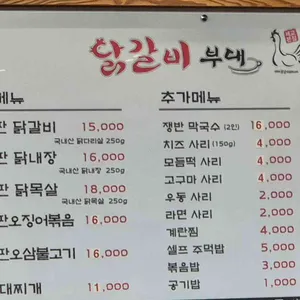 닭갈비 부대
메뉴
판 닭갈비 15,000
국내산 닭다리살 250g
판 닭내장 16,000
국내산 닭내장 250g
판 닭목살 18,000
국내산 닭목살 250g
판오징어볶음 16,000
판오삼불고기 16,000
대찌개 11,000
추가메뉴
쟁반 막국수 (2인) 16,000
치즈 사리 (150g) 4,000
모듬떡 사리 4,000
고구마 사리 4,000
우동 사리 2,000
라면 사리 2,000
계란찜 4,000
셀프 주먹밥 5,000
볶음밥 3,000
공기밥 1,000